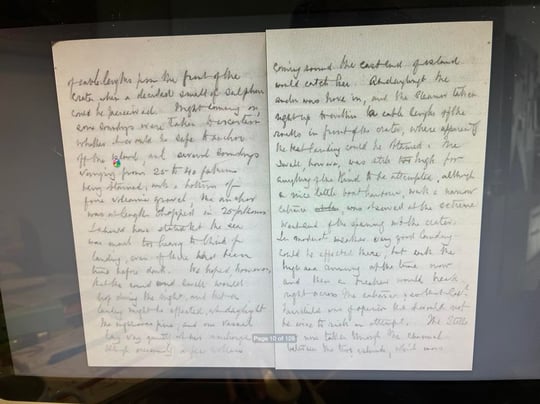 of cable lengths from the front of the
Crater when a decided smell of Sulphur
could be perceived. Night coming on,
some soundings were taken to ascertain
whether it would be safe to anchor
off the island, and several soundings
varying from 25 to 40 fathoms
being obtained, with a bottom of
fine volcanic gravel, the anchor
was at length dropped in 25 fathoms
I should have stated that the sea
was much too heavy to think of
landing, even if there had been
time before dark. We hoped however,
that the wind and swell would
during the night, and that a
landing might be effected, at daylight
The night was fine, and our vessel
lay very quietly at her anchorage
a few
coming round the east end of island
would catch her. At daylight the
anchor was hove in, and the steamer taken
right up to within a cable length of the
rocks in front of the crater, where apparently
the best landing could be obtained. The
swell however, was still too high for
anything of the kind to be attempted, although
a nice little boat harbour, with a narrow
entrance was observed at the extreme
West end of the opening into the crater.
In moderate weather very good landing
could be effected there; but with the
high sea running at the time now
and then a breaker would break
right across the entrance, so that Capt
Fairchild was of opinion that it would not
be wise to risk an attempt. The Stella
was taken through the channel
between the two islands, which was
Page 10 of 129